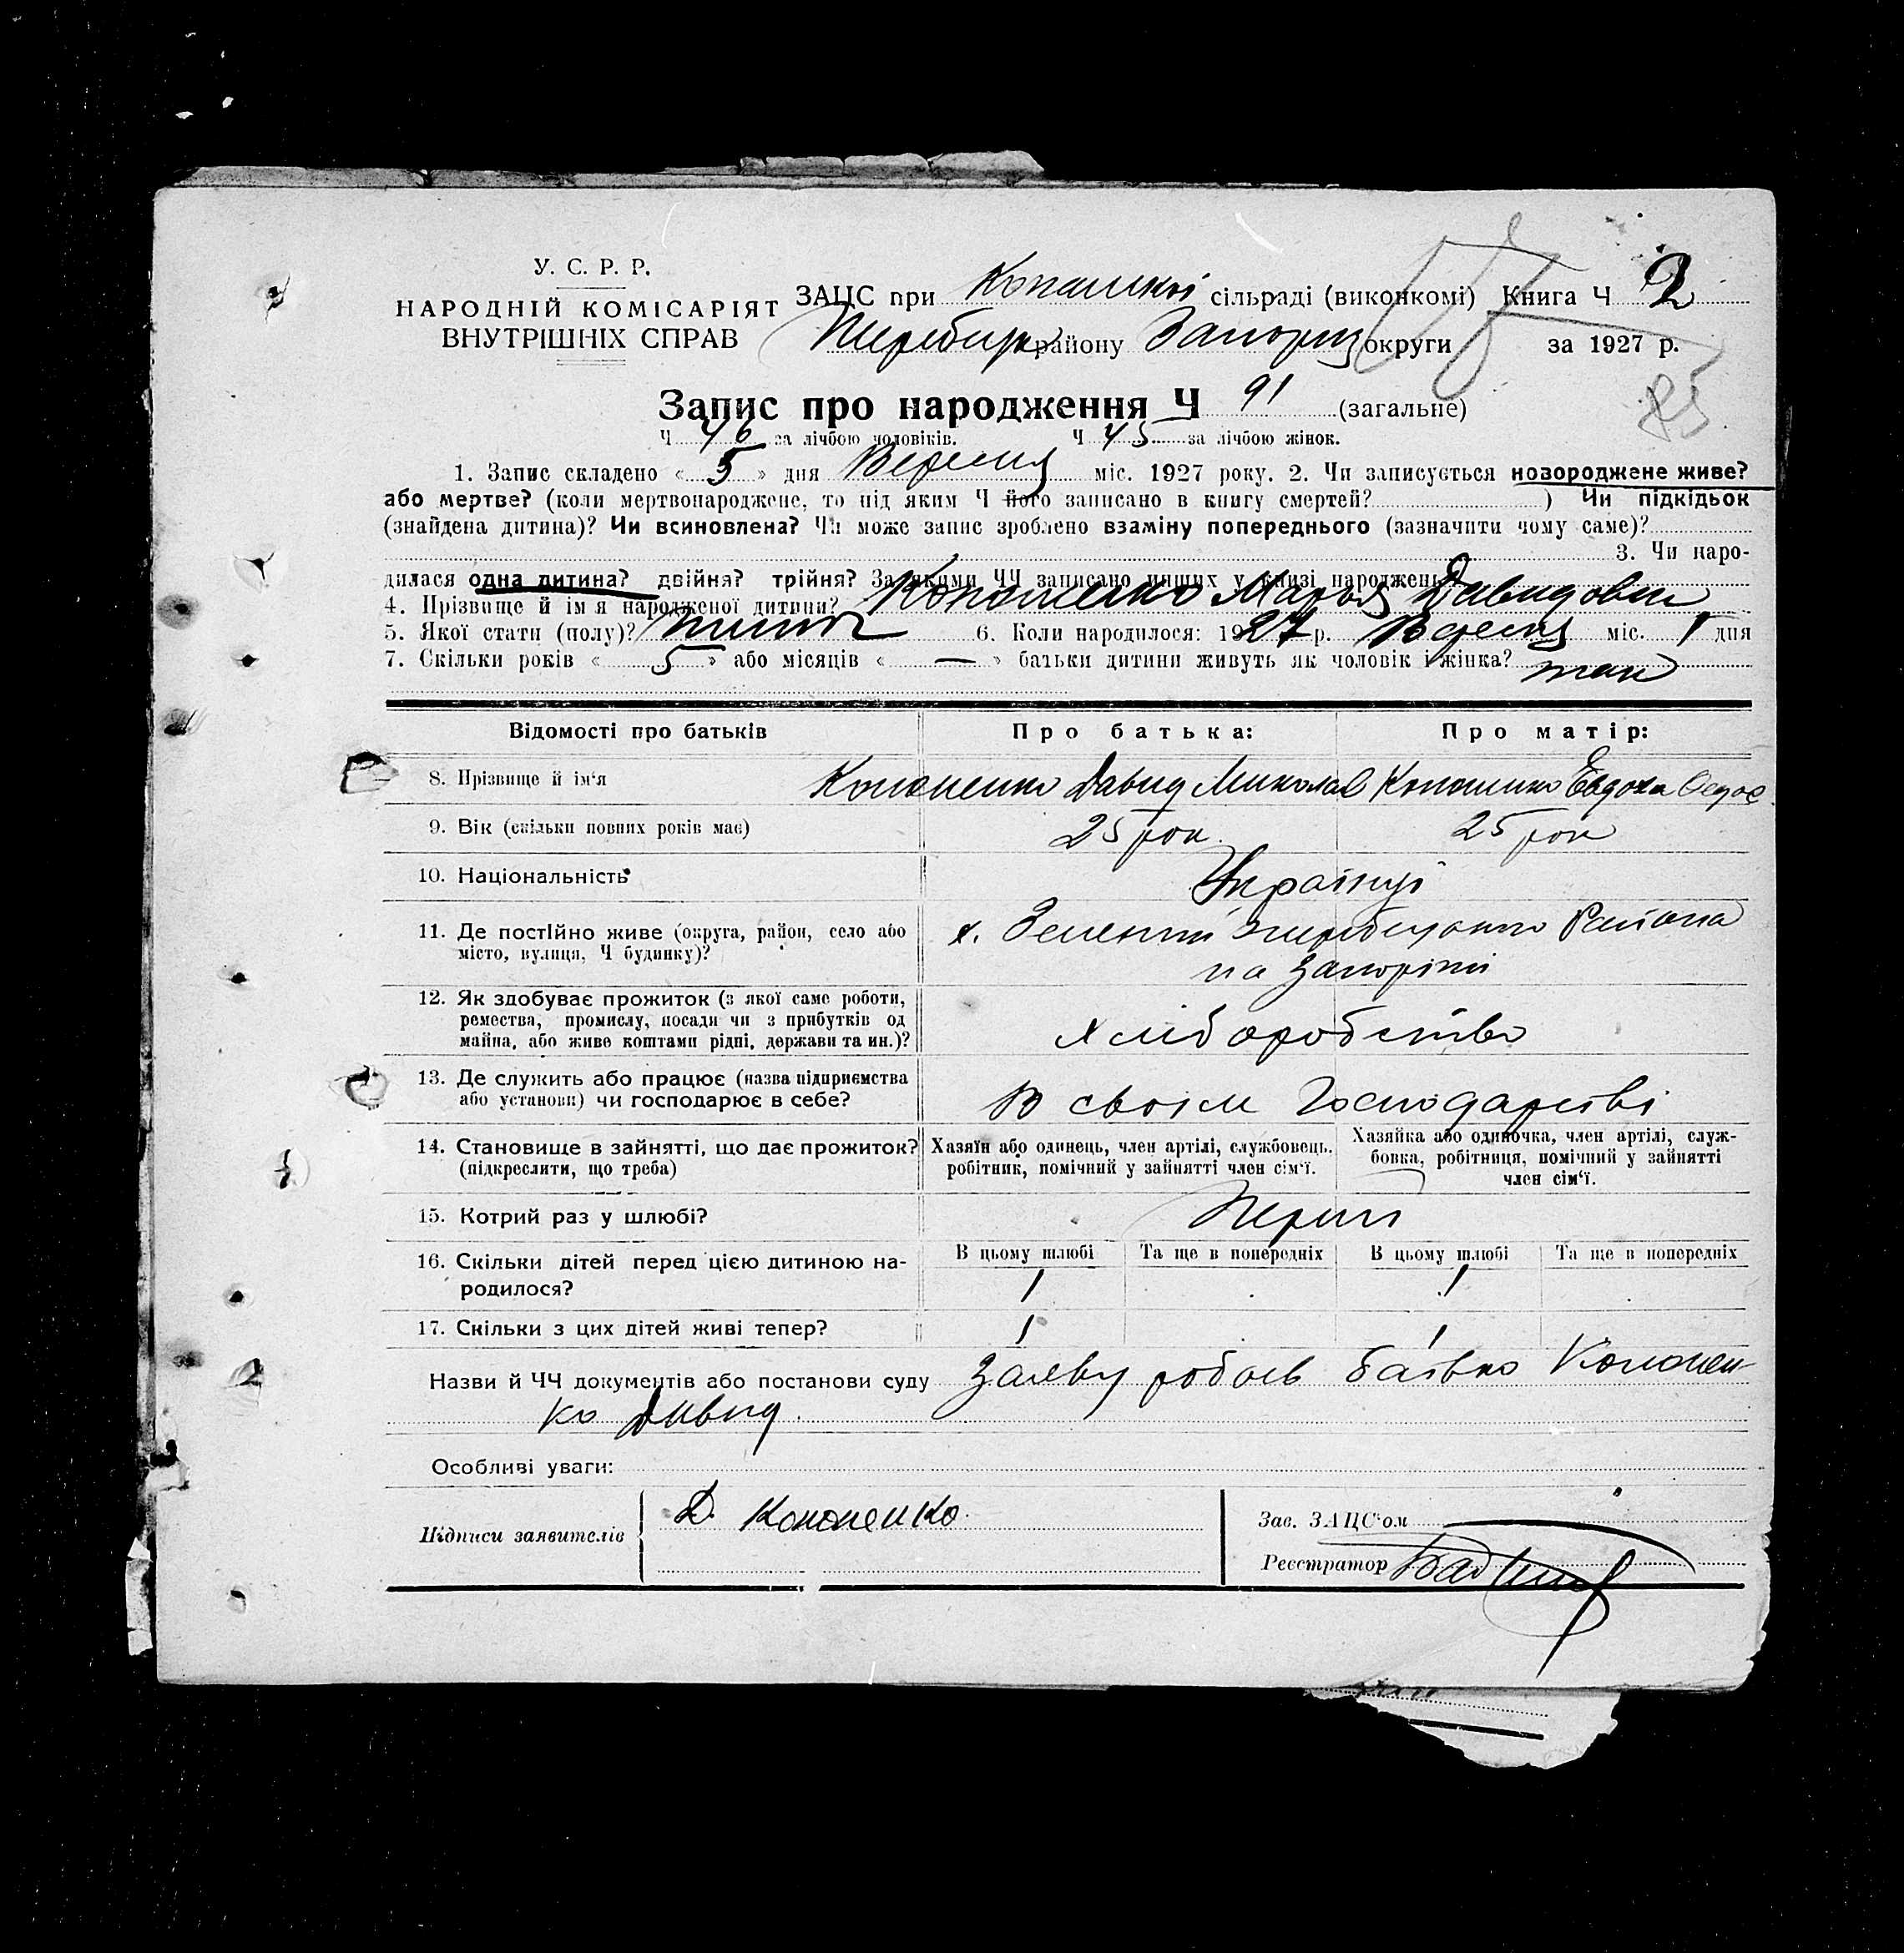 У. С. Р. Р.
НАРОДНІЙ КОМІСАРІЯТ
ВНУТРІШНІХ СПРАВ
ЗАЦС при сільраді (виконкомі) Книга Ч 2
району Запоріз округи за 1927 р.
85
Запис про народження Ч 91 (загальне)
Ч 46 за лічбою чоловіків. Ч 45 за лічбою жінок.
1. Запис складено « 5 » дня Вересня міс. 1927 року. 2. Чи записується новороджене живе?
або мертве? (коли мертвонароджене, то під яким Ч його записано в книгу смертей? ) Чи підкідьок
(знайдена дитина)? Чи всиновлена? Чи може запис зроблено взаміну попереднього (зазначити чому саме)?
3. Чи наро-
дилася одна дитина? двійня? трійня? За якими ЧЧ записано инших у книзі народжень?
4. Прізвище й ім'я народженої дитини? Кононенко Марья Давидовна
5. Якої стати (полу)? 6. Коли народилося: 1927 р. Вересня міс. 1 дня
7. Скільки років « 5 » або місяців « — » батьки дитини живуть як чоловік і жінка? так
Відомості про батьків Про батька: Про матір:
8. Прізвище й ім'я Кононенко Давид Микола Кононенко Евдоха Федос
9. Вік (скільки повних років має) 25 рок. 25 рок
10. Національність Українці
11. Де постійно живе (округа, район, село або
місто, вулиця, Ч будинку)? х. Зелений Района
на Запоріжі
12. Як здобуває прожиток (з якої саме роботи,
ремества, промислу, посади чи з прибутків од
майна, або живе коштами рідні, держави та ин.)? хліборобство
13. Де служить або працює (назва підприємства
або установи) чи господарює в себе? В своїм Господарстві
14. Становище в зайнятті, що дає прожиток?
(підкреслити, що треба)
Хазяїн або одинець, член артілі, службовець,
робітник, помічний у зайнятті член сім'ї.
Хазяйка або одиночка, член артілі, служ-
бовка, робітниця, помічний у зайнятті
член сім'ї.
15. Котрий раз у шлюбі? Перши
16. Скільки дітей перед цією дитиною на-
родилося?
В цьому шлюбі Та ще в попередніх В цьому шлюбі Та ще в попередніх
1 1
17. Скільки з цих дітей живі тепер? 1 1
Назви й ЧЧ документів або постанови суду Заяву робыв батько Кононен-
ко Давид.
Особливі уваги:
Підписи заявителів Д. Кононенко.
Зав. ЗАЦС'ом
Реєстратор